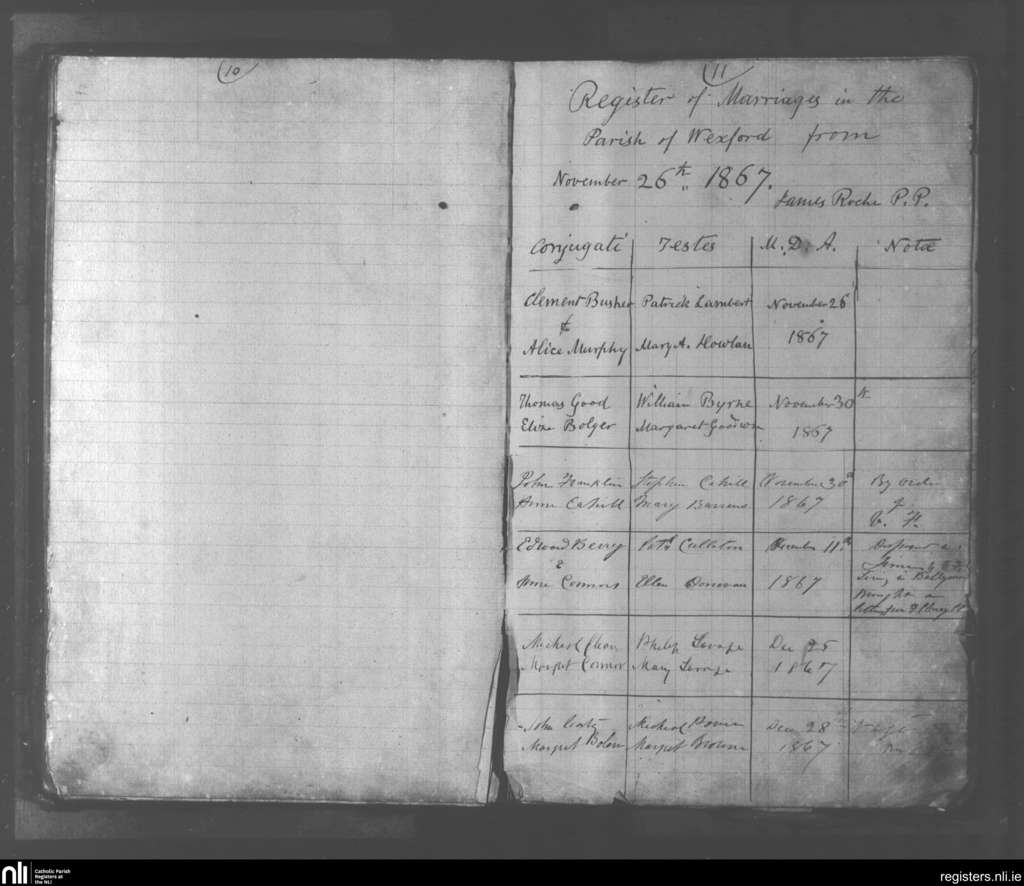 10
11
Register of Marriages in the
Parish of Wexford from
November 26th 1867.
James Roche P.P.
Conjugati Testes M. D. A. Notæ
Clement Busher Patrick Lambert November 26
& 1867
Alice Murphy Mary A. Howlan
Thomas Good William Byrne November 30th
Eliza Bolger Margaret 1867
John Franklin Stephen Cahill November 30th By order
Anne Cahill Mary 1867 of
V. F.
Edward Berry Patk Culleton December 11th
&
Anne Connors Ellen Donovan 1867
Michael Philip Savage Dec 25
Margret Connor Mary Savage 1867
John Michael Dec 28
Margret Bolan Margret Browne 1867
nli
Catholic Parish
Registers at
the NLI
registers.nli.ie